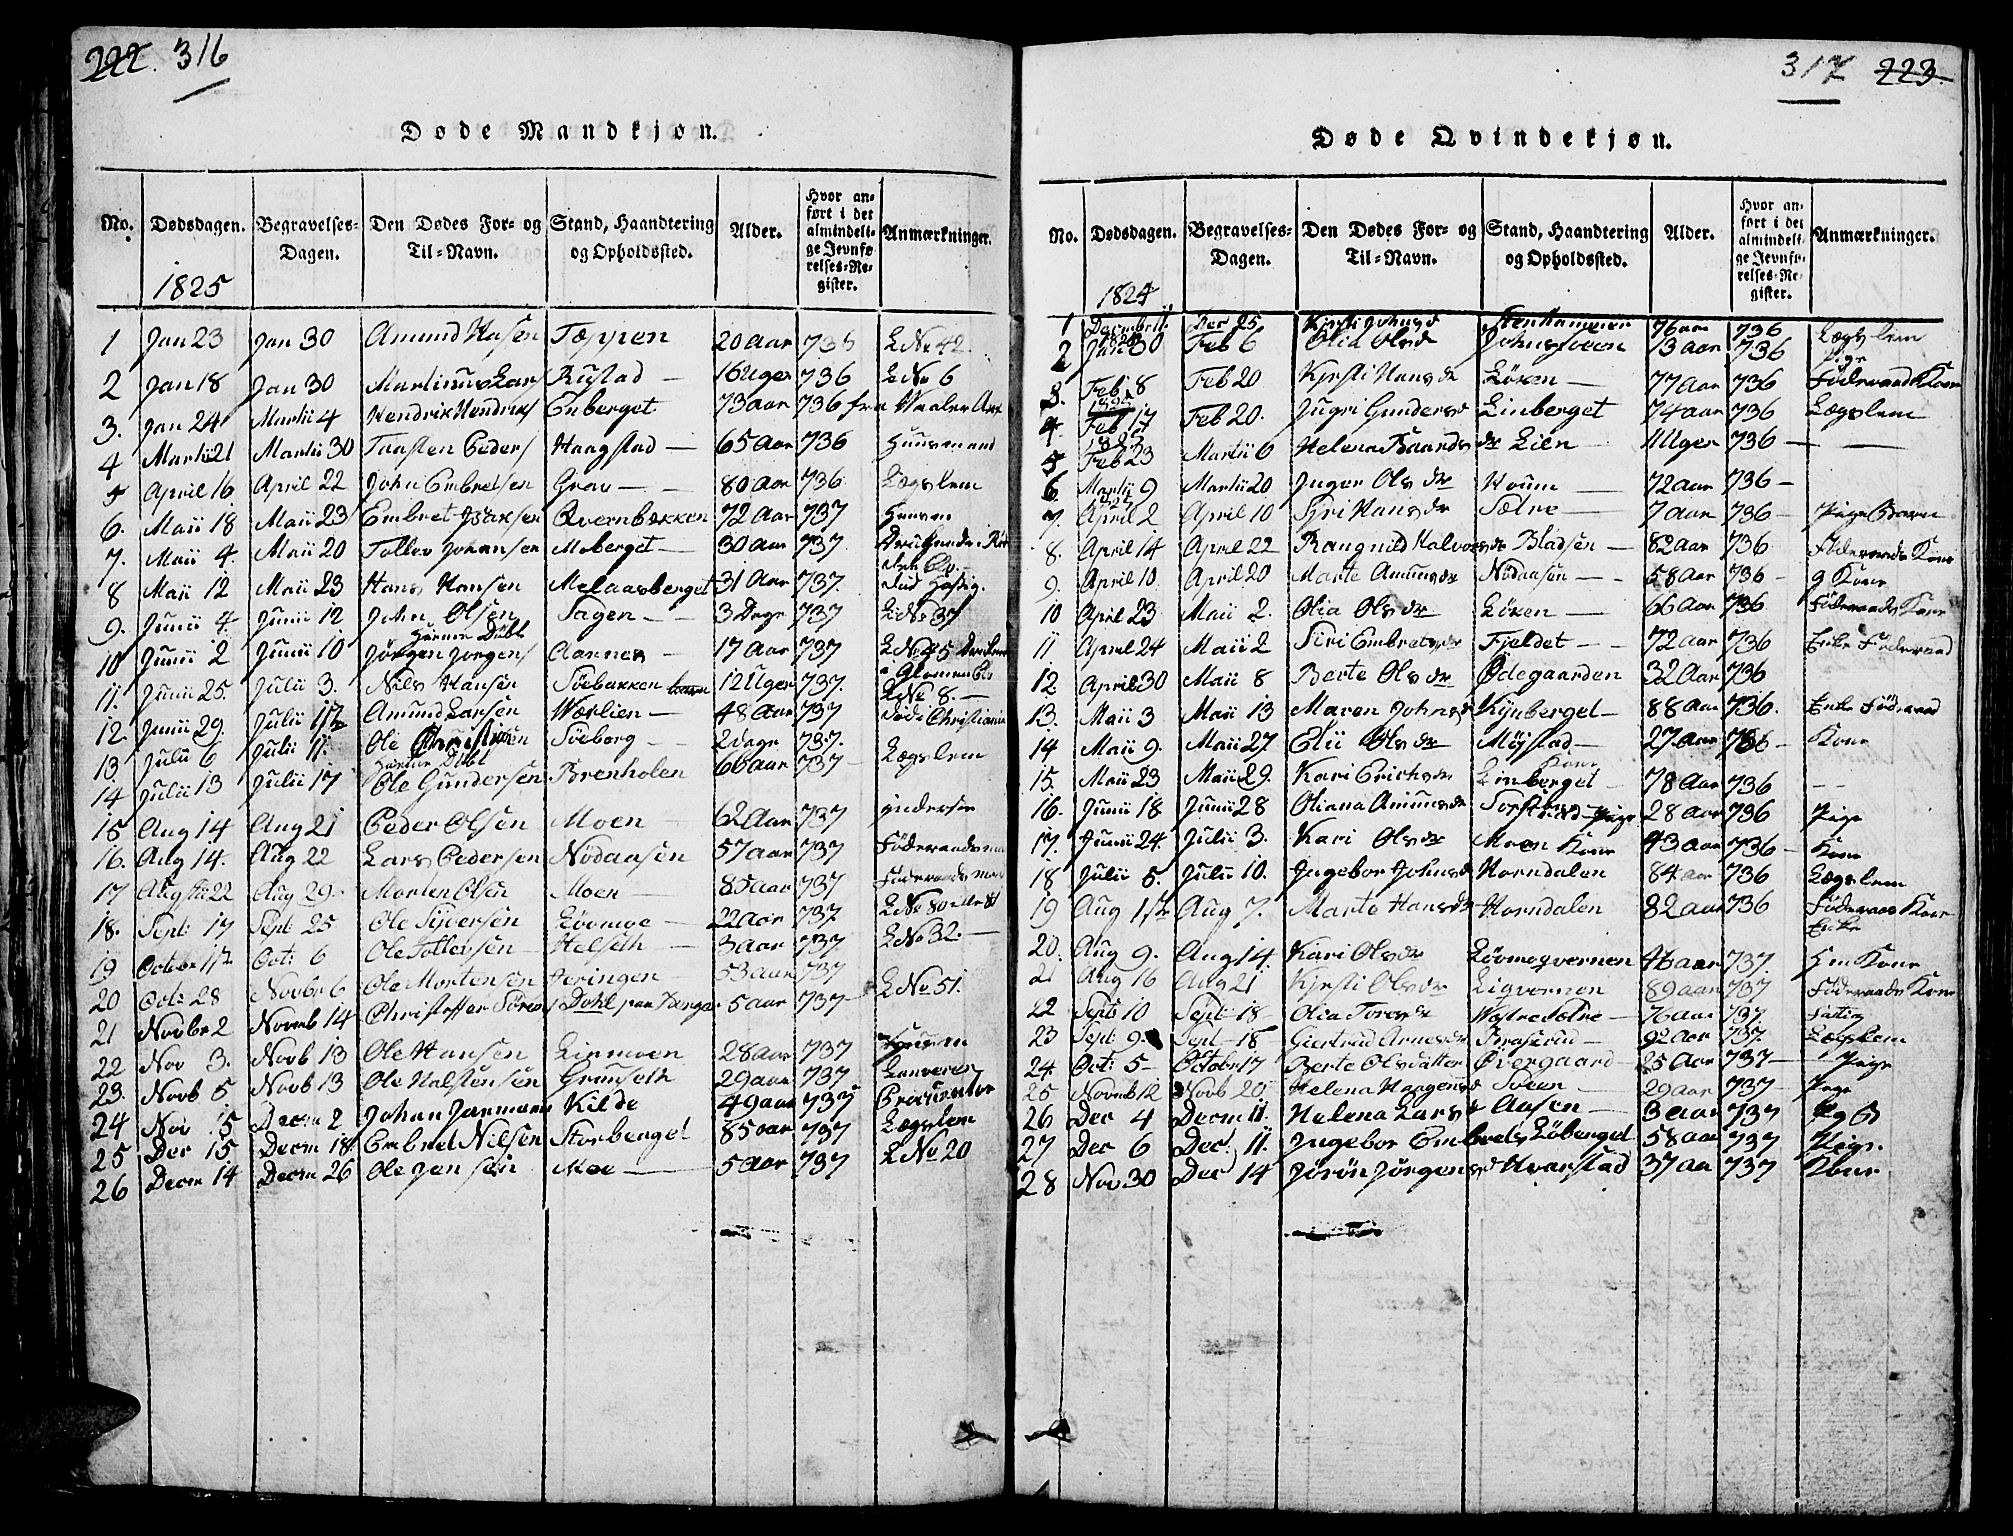 222. 316
Døde Mandkjøn.
No. Dødsdagen. Begravelses-Dagen. Den Dødes For- og Til-Navn. Stand, Haandtering og Opholdssted. Alder. Hvor anført i det almindelige Jevnførelses-Register. Anmærkninger.
1825
1 Jan 23 Jan 30 Amund Hansen Tæppen 20 Aar 735 LNo 42
2 Jan 18 Jan 30 Martinus Lars Rustad 16 Uger 736 LNo 6
3. Jan 24 Martii 4 Hendrik Hendriks Enberget 73 aar 736 fra Vaaler
4 Martii 21 Martii 30 Taasten Peders Haagstad 65 Aar 736 Huusmand
5 April 16 April 22 John Embretsen Grav 80 Aar 736 Lægslem
6. Maii 18 Maii 23 Embret Qvernbækken 72 Aar 737
7. Maii 4. Maii 20 Tollev Johansen Moberget 30 Aar 737
8 Maii 12 Maii 23 Hans Hansen Melaasberget 31 Aar 737.
9. Junii 4. Junii 12 John Olsen Hiemme Døbt Sagen 3 Dage 737 LNo 37
10 Junii 2 Junii 10 Jørgen Jørgens Aarnes 17 Aar 737
11. Junii 25. Julii 3. Nils Hansen Søebakken 12 Uger 737. LNo 8
12. Junii 29. Julii Amund Larsen Wærlien 48 Aar 737 død i Christiania
13. Julii 6 Julii 11. Ole Christiansen Hiemme Døbt Søeborg 2 dage 737.
14 Julii 13 Julii 17 Ole Gundersen Brenholen 66 aar 737 Lægslem
15 Aug 14 Aug 21 Peder Olsen Moen 62 Aar 737 inderste
16. Aug 14. Aug 22 Lars Pedersen Nødaasen 57 aar 737
17 Aug 22 Aug 29. Morten Olsen Moen 85 aar 737
18. Sept: 17 Sept 25 Ole Løvmoe 22 aar 737
19 Oct: 6 Ole Tollefsen Helseth 3 aar 737 LNo 32.
20 Oct: 28 Novbr 6 Ole Mortensen 53 aar 737
21 Novbr 2 Novmb 14 Christoffer Søren Dahl 5 aar 737 LNo 51.
22 Nov 3. Novb 13 Ole Hansen Linmoen 28 aar 737
23. Novb 5 Novb 13 Ole Halstensen Grunseth 29 aar 737
24 Nov 15 Decm 2 Johan Kilde 49 aar 737 Procurator
25 Der 15 Decm 18. Embret Nilsen Storberget 85 aar 737 Lægslem
26 Decm 14 Decm 26 Ole Jensen Moe 5 Aar 737 LNo 20
317 223.
Døde Qvindekjøn.
No. Dødsdagen. Begravelses-Dagen. Den Dødes For- og Til-Navn. Stand, Haandtering og Opholdssted. Alder. Hvor anført i det almindelige Jevnførelses-Register. Anmærkninger.
1824
1 Decmb 11 Der 25 Kjrsti Johnsdr Stenkammer 76 aar 736 Lægslem
2 Jan 30 Feb 6 Olia Olsdr 73 aar 736 Pige
3. Feb: 8 Feb 20 Kjrsti Hansdr Løken 77 Aar 736 Føderaads Kone
4. Feb 17 Feb 20. Jngri Gundersdr Linberget 74 aar 736 Lægslem
5. Feb 23 Martii 6 Helena Baardsdr Lien 11 Uger 736
6. Martii 9 Martii 20 Jnger Olsdr 72 aar 736
7. April 2 April 10 Siri Hansdr Sætre 7 aar 736 Pige Barn
8. April 14 April 22 Rangnild Halvorsdr 82 aar 736 Føderaads Kone
9. April 10. April 20 Marte Amunsdr Nødaasen 58 Aar 736 g Kone
10 April 23 Maii 2. Olia Olsdr Løken 66 Aar 736 Føderaads Kone
11 April 24 Maii 2 Siri Embretsdr Fjeldet 72 Aar 736 Enke Føderaad
12 April 30 Maii 8 Berte Olsdr Ødegaarden 32 Aar 736
13. Maii 3 Maii 13 Maren Johnsdr Kynberget 88 aar 736. Enke Føderaad
14 Maii 9. Maii 27 Elii Olsdr Møystad 27 Aar 736 Kone
15. Maii 23 Maii 29. Kari Erichsdr Linberget Kone 78 Aar 736
16. Junii 18 Junii 28 Oliana Amunsdr 28 aar 736 Pige
17. Junii 24. Julii 3. Kari Olsdr Moen Kone 43 Aar 736 Kone
18 Julii 5. Julii 10. Jngebor Johnsdr Horndalen 84 aar 736 Lægslem
19 Aug Aug 7. Marte Hansdr Horndalen 82 aar 736 Føderaads Kone Enke
20. Aug 9. Aug 14. Kari Olsdr Løvmoqvernen 46 aar 737. Hm Kone
21 Aug 16 Aug 21. Kjrsti Olsdr 89 aar 737 Føderaads Kone
22 Sept 10 Sept: 18 Olia Toresdr Westre Sætre 76 aar 737 Fattig
23 Sept: 9. Sept 18 Giertrud Arnesdr 92 aar 737. Lægslem
24 Oct: 5 October 17 Berte Olsdatter Øvergaard 25 Aar 737 Pige
25 Novmb 12 Novb 20. Helena 29 aar 737 Pige
26 Der 4 Decm 11. Helena Larsdr Aasen 3 aar 737
27 Dec 6 Dec. 11. Jngebor Embrets Løberget 58 aar 737 Pige
28 Nov 30 Dec 14 Jørøn Jørgensd Kvarstad 37 aar 737 Kone